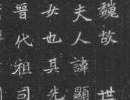 魏故 世
夫人諱顯
女也其先
晉代祖司